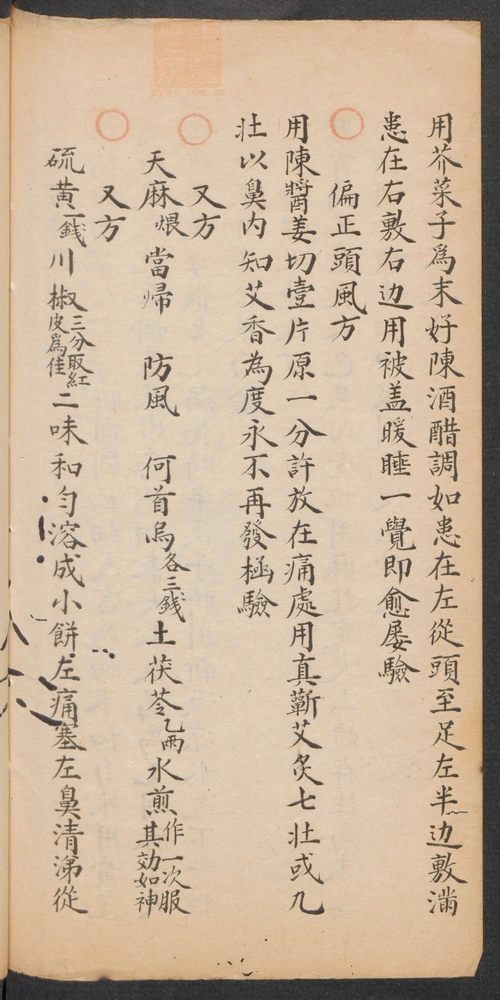 用芥菜子爲末好陳酒醋調如患在左從頭至足左半边敷滿
患在右敷右边用被盖暖睡一覺即愈屡驗
偏正頭風方
用陳醬姜切壹片原一分許放在痛處用真蘄艾炙七壮或九
壮以鼻内知艾香為度永不再發極驗
又方
天麻煨 當帰 防風 何首烏各三錢 土茯苓乙兩 水煎作一次服其効如神
又方
硫黄一錢川椒三分取紅皮爲佳二味和匀溶成小餅左痛塞左鼻清涕從